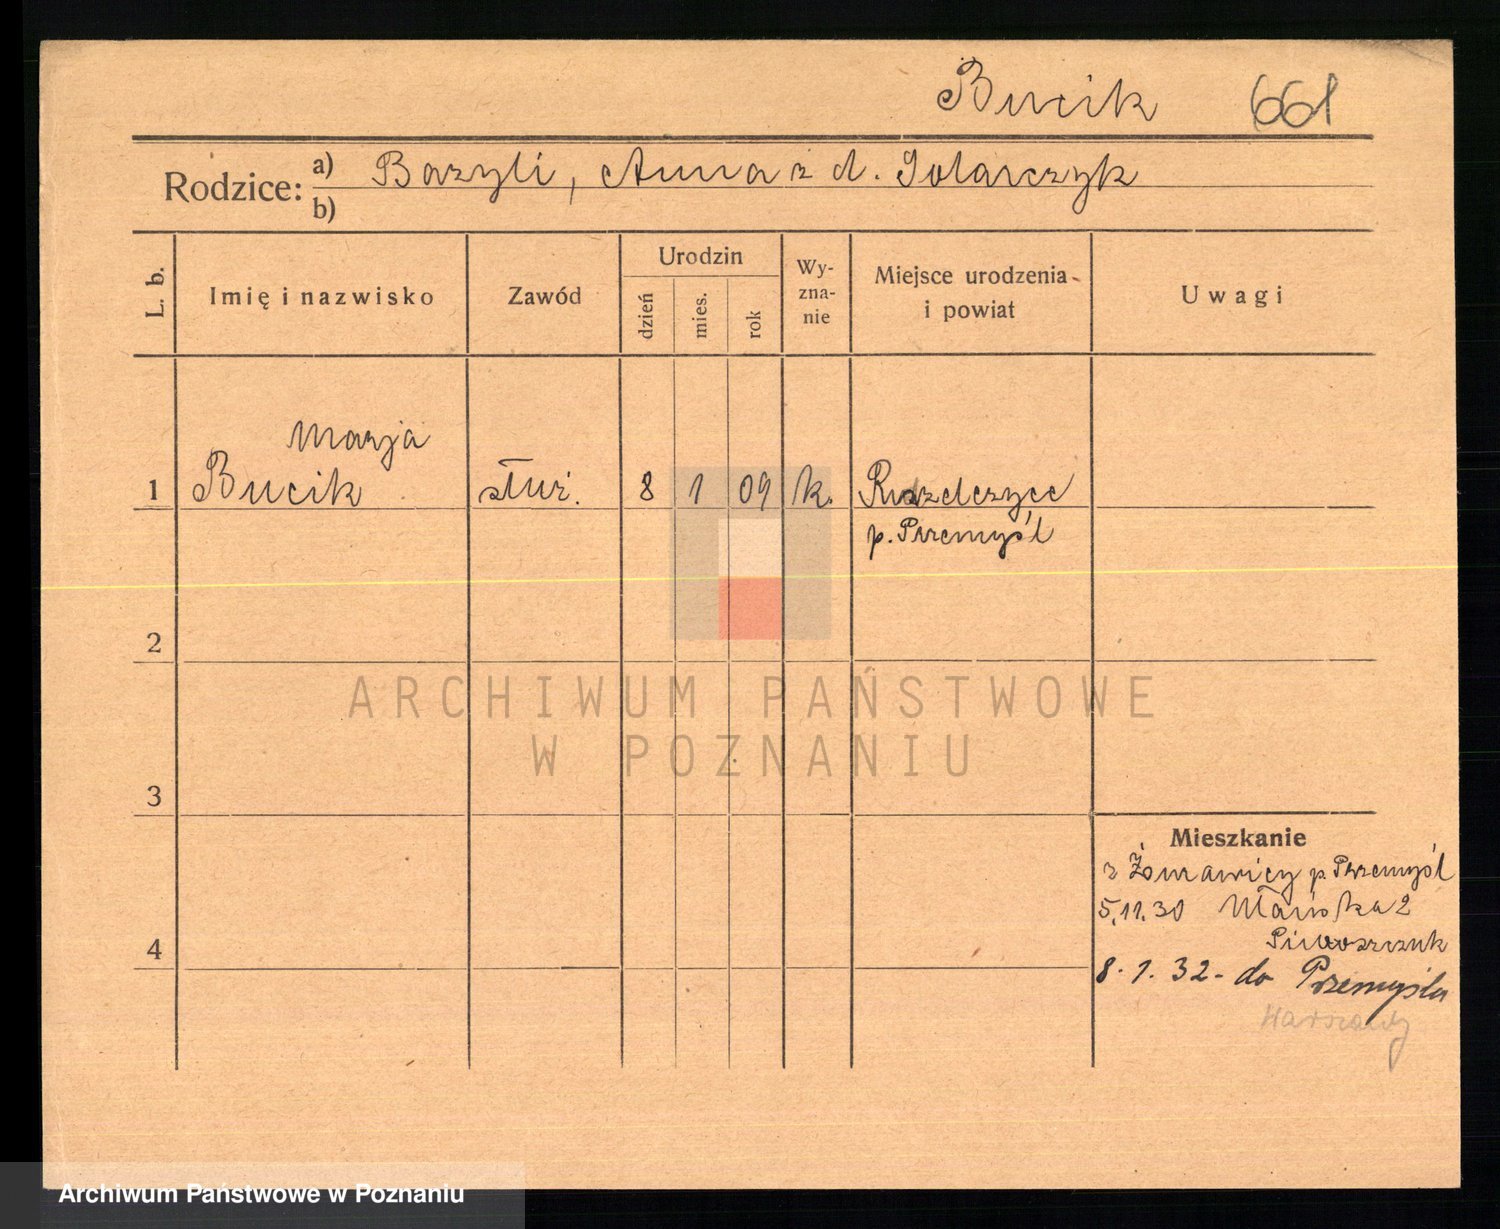 Bucik 661
Rodzice: a) Bazyli, Anna z d. Golarczyk
b)
L. b.
Imię i nazwisko
Zawód
Urodzin
dzień
mies.
rok
Wy-
zna-
nie
Miejsce urodzenia
i powiat
Uwagi
Marja
1 Bucik służ. 8 1 09 k. Ruszelczyce
p. Przemyśl
2
ARCHIWUM PAŃSTWOWE
W POZNANIU
3
Mieszkanie
z Żurawicy p Przemyśl
5.11.30 Młańska 2
4
8.1.32 - do Przemyśla
Warszawy
Archiwum Państwowe w Poznaniu